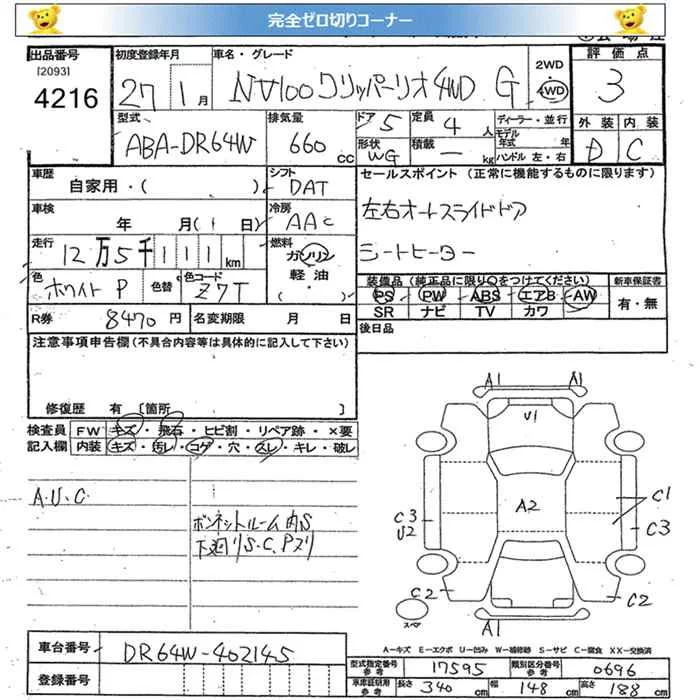 完全ゼロ切りコーナー
出品番号 初度登録年月 車名・グレード 2WD 評価点
[2093] 27 1月 NV100クリッパーリオ4WD G 4WD 3
4216
型式 排気量 ドア 5 定員 4人 ディーラー・並行 外装 内装
ABA-DR64W 660 CC 形状 WG 積載 — kg モデル年式 年 D C
ハンドル 左・右
車歴 シフト セールスポイント (正常に機能するものに限ります)
自家用・( ) DAT
車検 冷房 左右オートスライドドア
年 月( 日) AAC
走行 燃料 シートヒーター
12万5千111km ガソリン
軽油
( )
色 ホワイトP 色替 色コード Z7T 装備品 (純正品に限り○をつけてください) 新車保証書
PS PW ABS エアB AW 有・無
R券 8470円 名変期限 月 日 SR ナビ TV カワ
注意事項申告欄(不具合内容等は具体的に記入して下さい) 後日品
修復歴 有 [箇所 ]
検査員 FW キズ・飛石・ヒビ割・リペア跡・×要
記入欄 内装 キズ・汚レ・コゲ・穴・スレ・キレ・破レ
A.U.C
ボンネットルーム内S
下廻りS.C.Pヌリ
A1 A1
U1
A2
C1
C3 C3
U2
C2 C2
スペア A1
A−キズ E−エクボ U−凹み W−補修跡 S−サビ C−腐食 XX−交換済
車台番号 DR64W-402145
型式指定番号 参考 17595 類別区分番号 参考 0696
登録番号 車庫証明用 参考 長さ 340 cm 幅 148 cm 高さ 188 cm